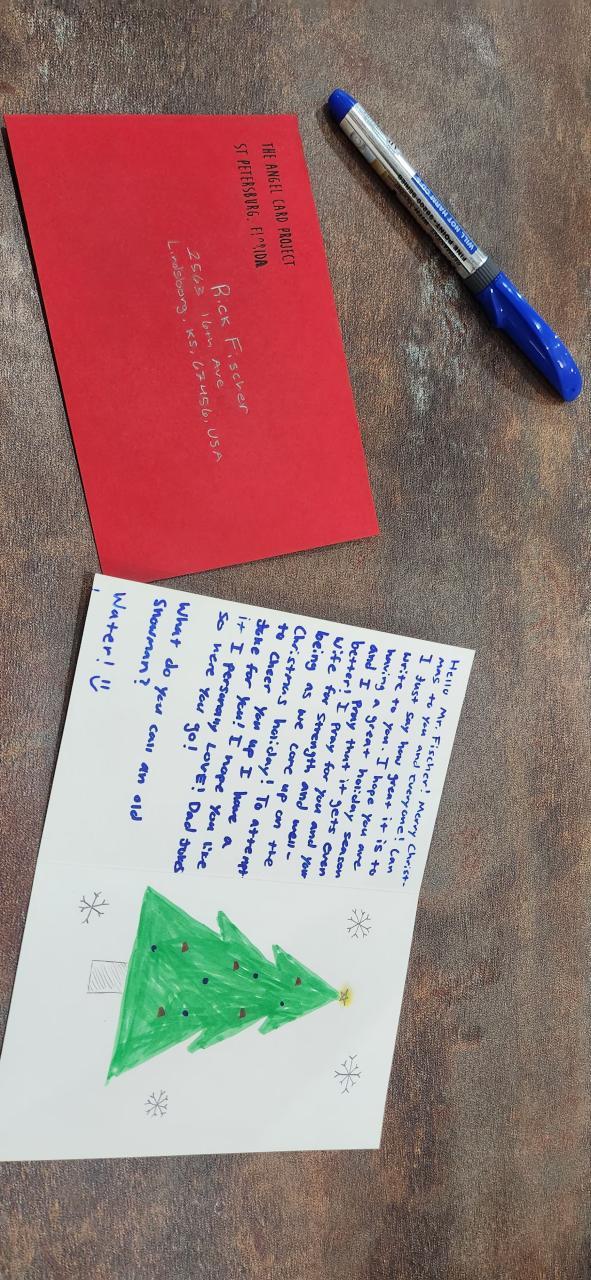 THE ANGEL CARD PROJECT
ST PETERSBURG, FLORIDA
Rick Fischer
2563 16th Ave
Lindsborg, KS, 67456, USA
WILL NOT
FINE POINT
Hello Mr. Fischer! Merry Christ-
mas to you and Everyone! Can
I Just say how great it is to
write to you. I hope you are
having a great holiday season
and I Pray that it gets even
better! I Pray for you and your
wife for strength and well-
being as we come up on the
Christmas holiday! To attempt
to Cheer you up I have a
Joke for you! I hope you like
it I personally LOVE! Dad Jokes
So here you go!
What do you call an old
Snowman?
Water!